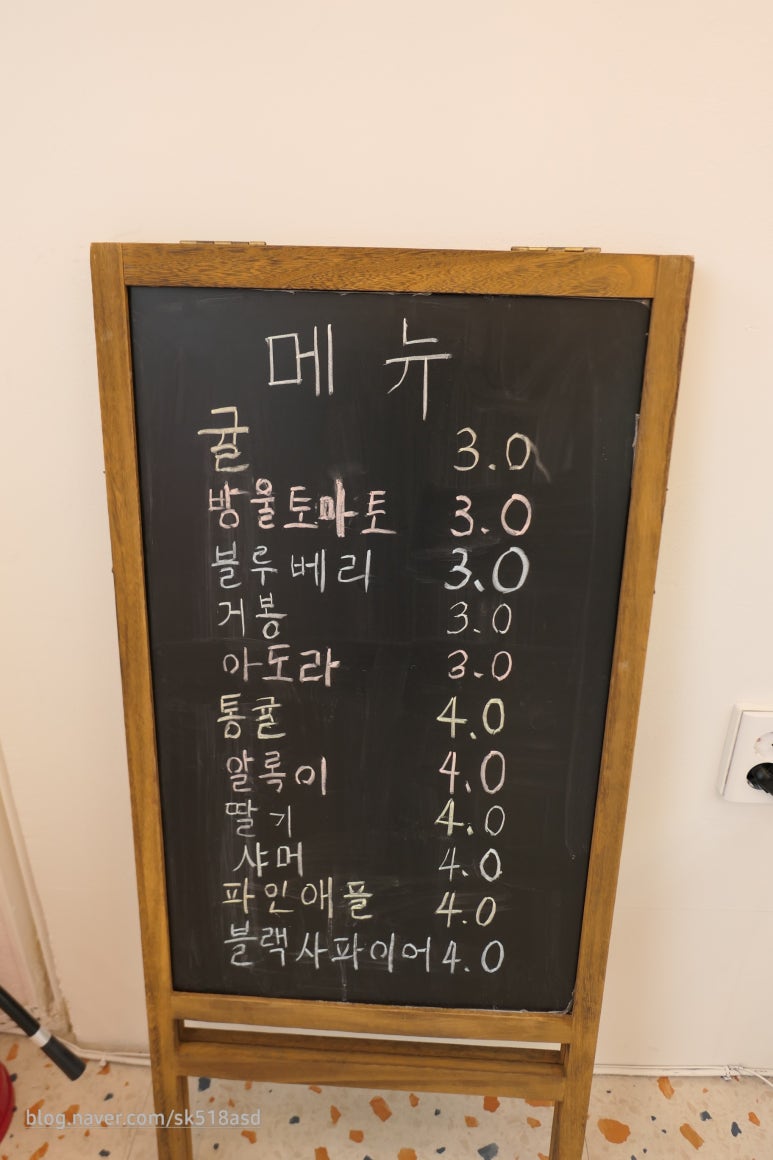 메뉴
귤 3.0
방울토마토 3.0
블루베리 3.0
거봉 3.0
아도라 3.0
통귤 4.0
알록이 4.0
딸기 4.0
샤머 4.0
파인애플 4.0
블랙사파이어 4.0
blog.naver.com/sk518asd